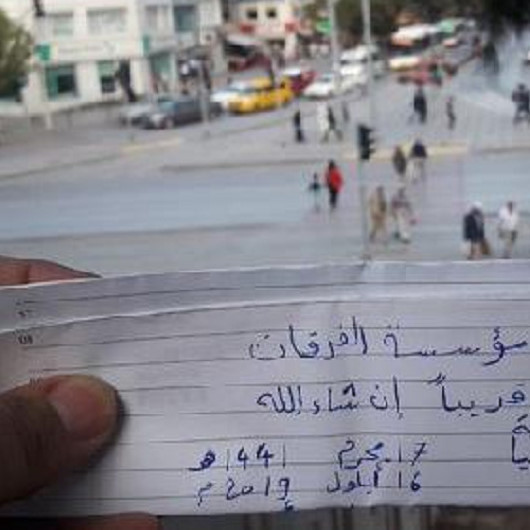 ؤسسة الفرقان
قريباً إن شاء الله
17 محرم 1441هـ
16 أيلول 2019 م